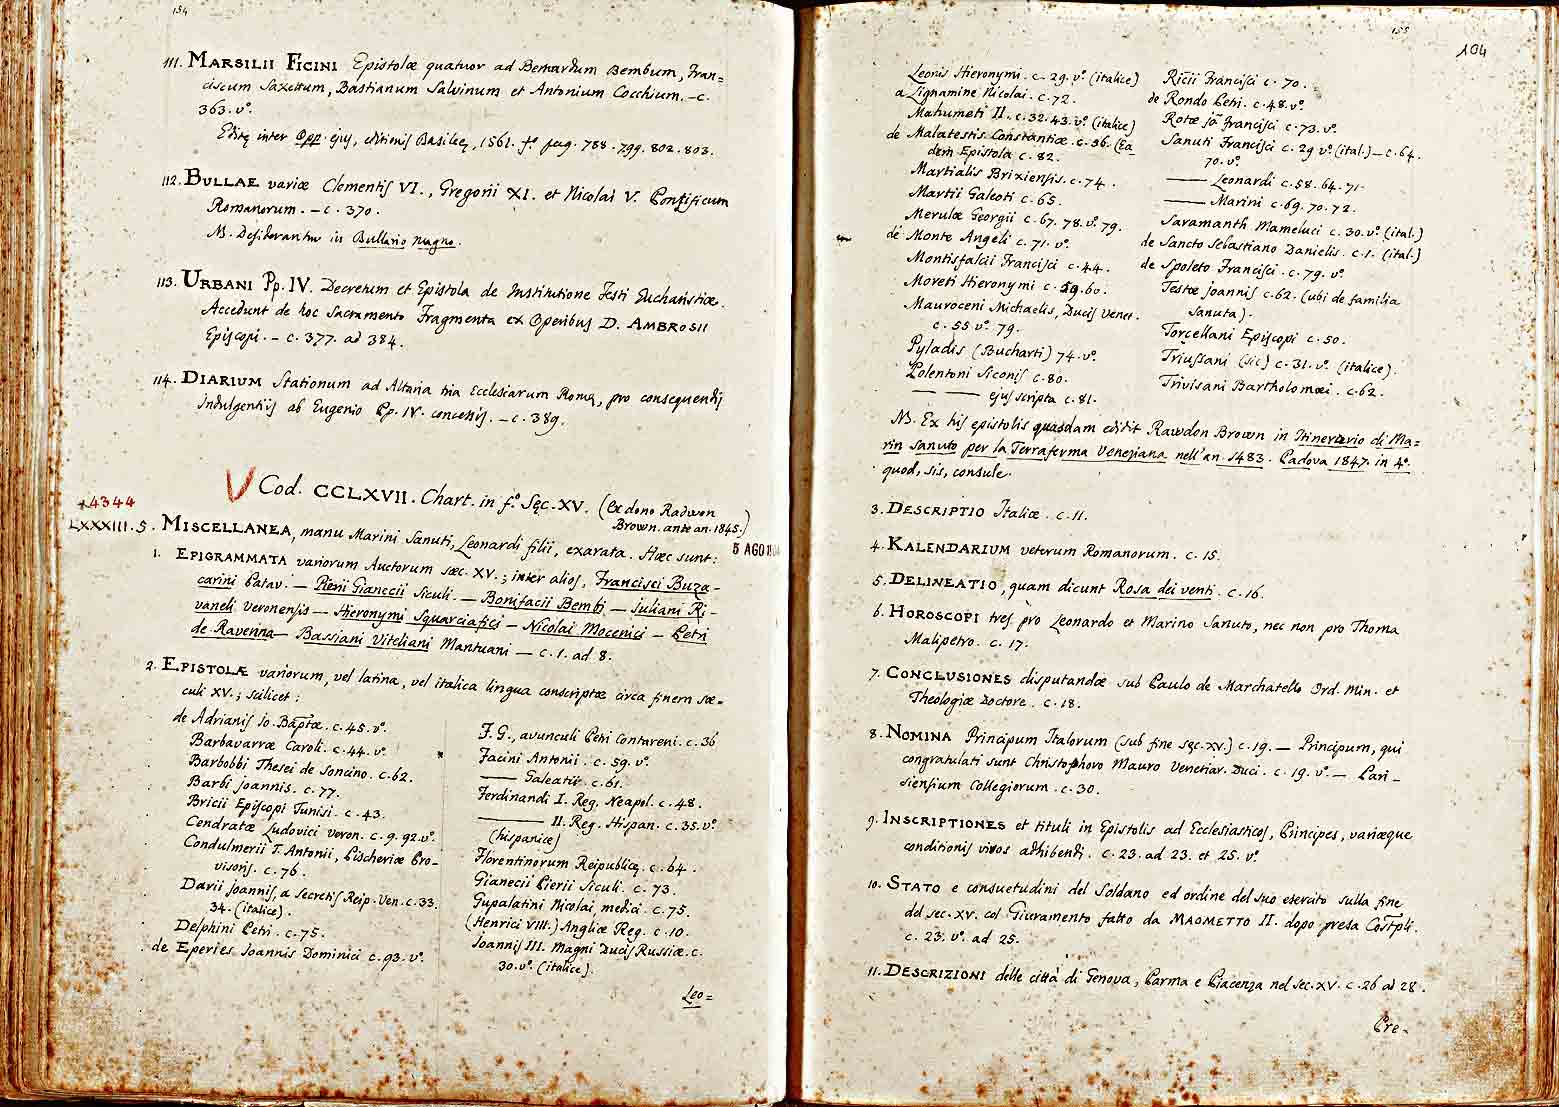 154
111. MARSILII FICINI Epistolæ quatuor ad Bernardum Bembum, Fran=
ciscum Saxettum, Bastianum Salvinum et Antonium Cocchium. - c.
363. vº.
Editę inter Opp. ejus, editionis Basileę, 1561. fº pag. 788. 799. 802. 803.
112. BULLAE variæ Clementis VI., Gregorii XI. et Nicolai V. Pontificum
Romanorum. - c. 370.
N. Desiderantur in Bullario magno.
113. URBANI Pp. IV. Decretum et Epistola de Institutione Festi Eucharistiæ.
Accedunt de hoc Sacramento Fragmenta ex Operibus D. AMBROSII
Episcopi. - c. 377. ad 384.
114. DIARIUM Stationum ad Altaria tria Ecclesiarum Romę, pro consequendis
Indulgentiis ab Eugenio Pp. IV. concessis. - c. 389.
V Cod. CCLXVII. Chart. in fº. Sęc. XV. (Ex dono Radwon
Brown. ante an. 1845.)
4344
LXXXIII. 5. MISCELLANEA, manu Marini Sanuti, Leonardi filii, exarata. Hæc sunt:
5 AGO
1. EPIGRAMMATA variorum Auctorum sæc. XV.; inter alios, Francisci Buza-
carini Patav. - Pierii Gianecii Siculi. - Bonifacii Bembi - Juliani Ri-
vaneli Veronensis - Hieronymi Squarciafici - Nicolai Mocenici - Petri
de Ravenna - Bassiani Viteliani Mantuani - c. 1. ad 8.
2. EPISTOLÆ variorum, vel latina, vel italica lingua conscriptæ circa finem sæ-
culi XV.; scilicet:
de Adrianis Jo. Baptæ. c. 45. vº.
Barbavarræ Caroli. c. 44. vº.
Barbobbi Thesei de Soncino. c. 62.
Barbi Joannis. c. 77.
Bricii Episcopi Tunisi. c. 43.
Cendratæ Ludovici Veron. c. 9. 92. vº.
Condulmerii F. Antonii, Pischeriæ Pro-
visoris. c. 76.
Darii Joannis, a Secretis Reip. Ven. c. 33.
34. (italice).
Delphini Petri. c. 75.
de Eperies Joannis Dominici c. 93. vº.
F. G., avunculi Petri Contareni. c. 36
Facini Antonii. c. 59. vº.
—— Galeatii. c. 61.
Ferdinandi I. Reg. Neapol. c. 48.
—— II. Reg. Hispan. c. 35. vº
(hispanice)
Florentinorum Reipublicę. c. 64.
Gianecii Pierii Siculi. c. 73.
Gupalatini Nicolai, medici. c. 75.
(Henrici VIII.) Angliæ Reg. c. 10.
Joannis III. Magni Ducis Russiæ. c.
30. vº. (italice).
Leo=
155
104
Leonis Hieronymi. c. 29. vº. (italice)
a Lignamine Nicolai. c. 72.
Mahumeti II. c. 32. 43. vº. (italice)
de Malatestis Constantiæ. c. 36. (Ea-
dem Epistola c. 82.
Martialis Brixiensis. c. 74.
Martii Galeoti c. 65.
Merulæ Georgii c. 67. 78. vº. 79.
de Monte Angeli c. 71. vº.
Montisfalcii Francisci c. 44.
Moreti Hieronymi c. 59. 60.
Mauroceni Michaelis, Ducis Venet.
c. 55 vº. 79.
Pyladis (Bucharti) 74. vº.
Polentoni Siconis c. 80.
—— ejus scripta c. 81.
Ricii Francisci c. 70.
de Rondo Petri. c. 48. vº.
Rotæ Jo. Francisci c. 73. vº.
Sanuti Francisci c. 29 vº. (ital.) - c. 64.
70. vº.
—— Leonardi c. 58. 64. 71.
—— Marini c. 69. 70. 72.
Saramanth Mameluci c. 30. vº. (ital.)
de Sancto Sebastiano Danielis. c. 1. (ital.)
de Spoleto Francisci. c. 79. vº.
Testæ Joannis c. 62. (ubi de familia
Sanuta).
Torcellani Episcopi c. 50.
Triussani (sic) c. 31. vº. (italice).
Trivisani Bartholomæi. c. 62.
N. Ex his epistolis quasdam edidit Rawdon Brown in Itinerario di Ma=
rin Sanuto per la Terraferma Veneziana nell'an. 1483. Padova 1847. in 4º.
quod, sis, consule.
3. DESCRIPTIO Italiæ. c. 11.
4. KALENDARIUM veterum Romanorum. c. 15.
5. DELINEATIO, quam dicunt Rosa dei venti. c. 16.
6. HOROSCOPI tres pro Leonardo et Marino Sanuto, nec non pro Thoma
Malipetro. c. 17.
7. CONCLUSIONES disputandæ sub Paulo de Marchatello Ord. Min. et
Theologiæ Doctore. c. 18.
8. NOMINA Principum Italorum (sub fine sęc. XV.) c. 19. - Principum, qui
congratulati sunt Christophoro Mauro Venetiar. Duci. c. 19. vº. - Pari-
siensium Collegiorum. c. 30.
9. INSCRIPTIONES et tituli in Epistolis ad Ecclesiasticos, Principes, variæque
conditionis viros adhibendi. c. 23. ad 23. et 25. vº.
10. STATO e consuetudini del Soldano ed ordine del suo esercito sulla fine
del sec. XV. col Giuramento fatto da MAOMETTO II. dopo presa Costpli.
c. 23. vº. ad 25.
11. DESCRIZIONI delle città di Genova, Parma e Piacenza nel sec. XV. c. 26 ad 28.
Pre-